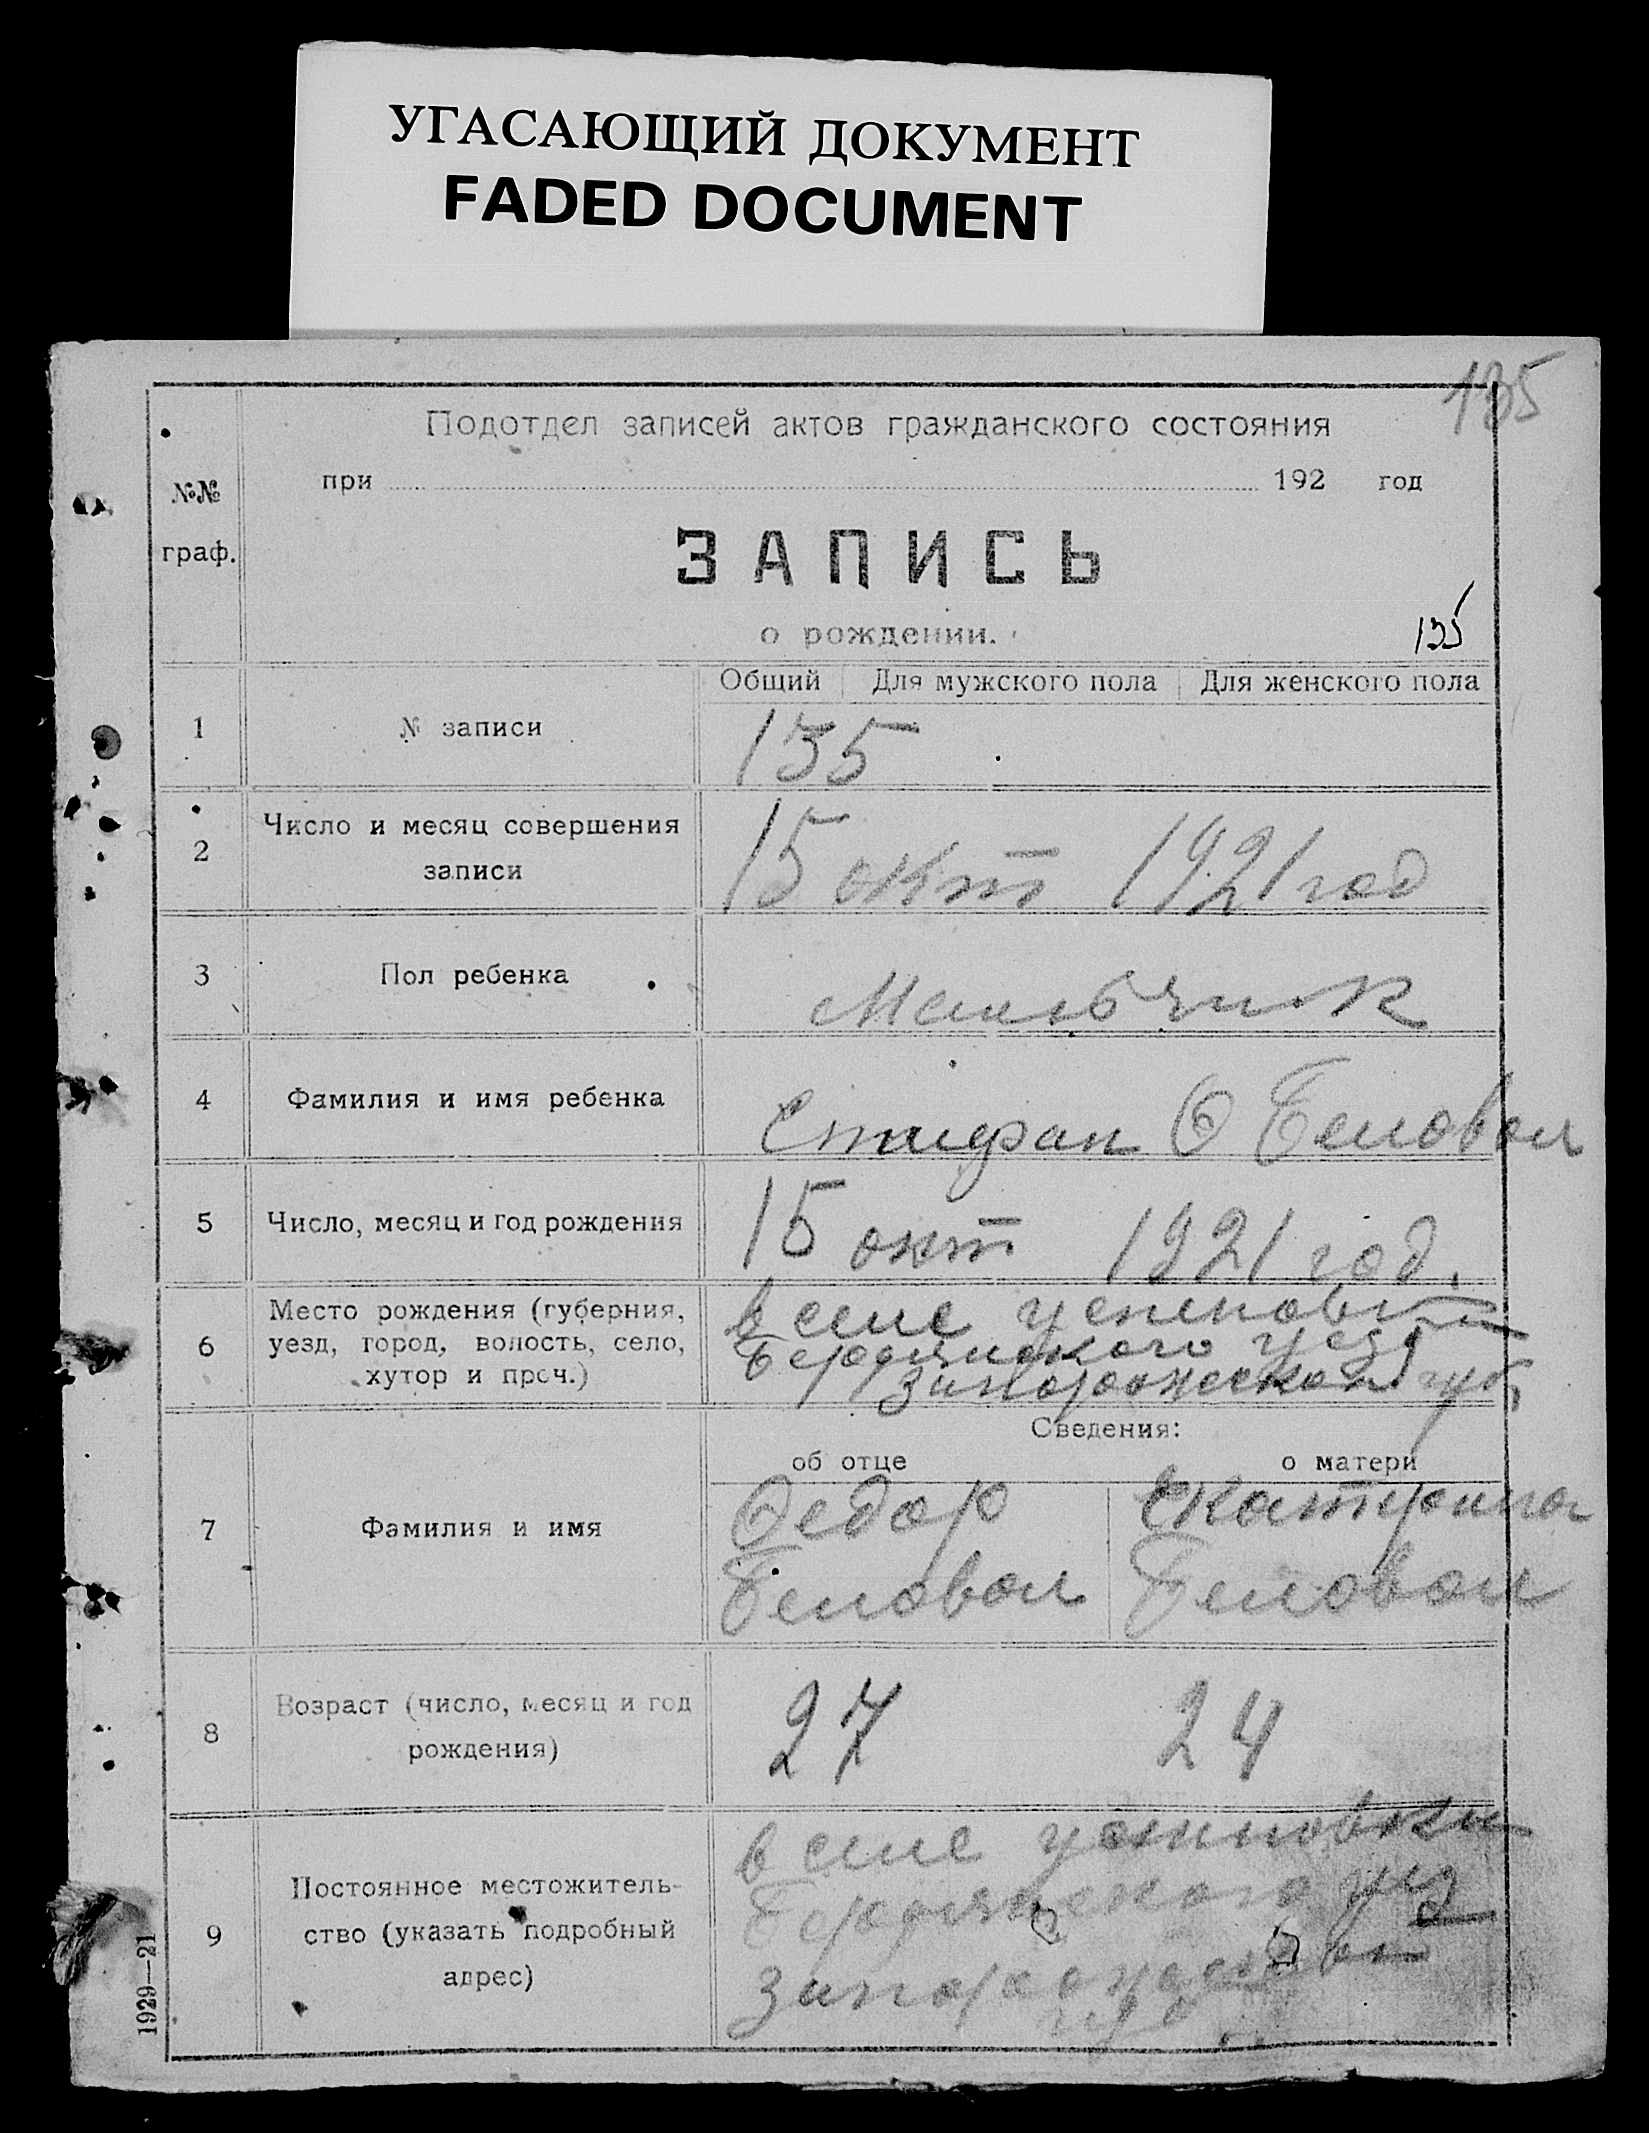 УГАСАЮЩИЙ ДОКУМЕНТ
FADED DOCUMENT
135
Подотдел записей актов гражданского состояния
№№ граф.
при 192 год
ЗАПИСЬ
о рождении.
135
Общий Для мужского пола Для женского пола
1 № записи 135
2 Число и месяц совершения
записи
15 окт 1921 год
3 Пол ребенка Мальчик
4 Фамилия и имя ребенка Стифан Ѳ Беловол
5 Число, месяц и год рождения 15 окт 1921 год.
6 Место рождения (губерния,
уезд, город, волость, село,
хутор и проч.)
в селе
Бердянского уезд
Запорожской губ
Сведения:
об отце о матери
7 Фамилия и имя
Федор Екатерина
Беловол Беловол
8 Возраст (число, месяц и год
рождения)
27 24
9 Постоянное местожитель-
ство (указать подробный
адрес)
в селе
Бердянского уез
губ
1929—21